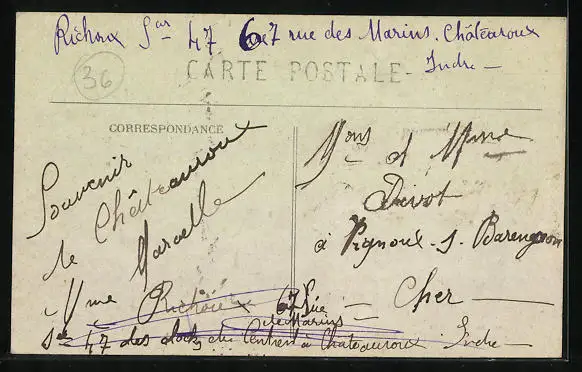 Richoux Sar 47 67 rue des Marins. Châteauroux
Indre
36
CARTE POSTALE
CORRESPONDANCE
Souvenir
de Châteauroux
Mme Marcelle
Richoux 67 Rue
des Marins
47 des à Châteauroux. Indre
Mons et Mme
à Vignoux. s. Barengeon
Cher